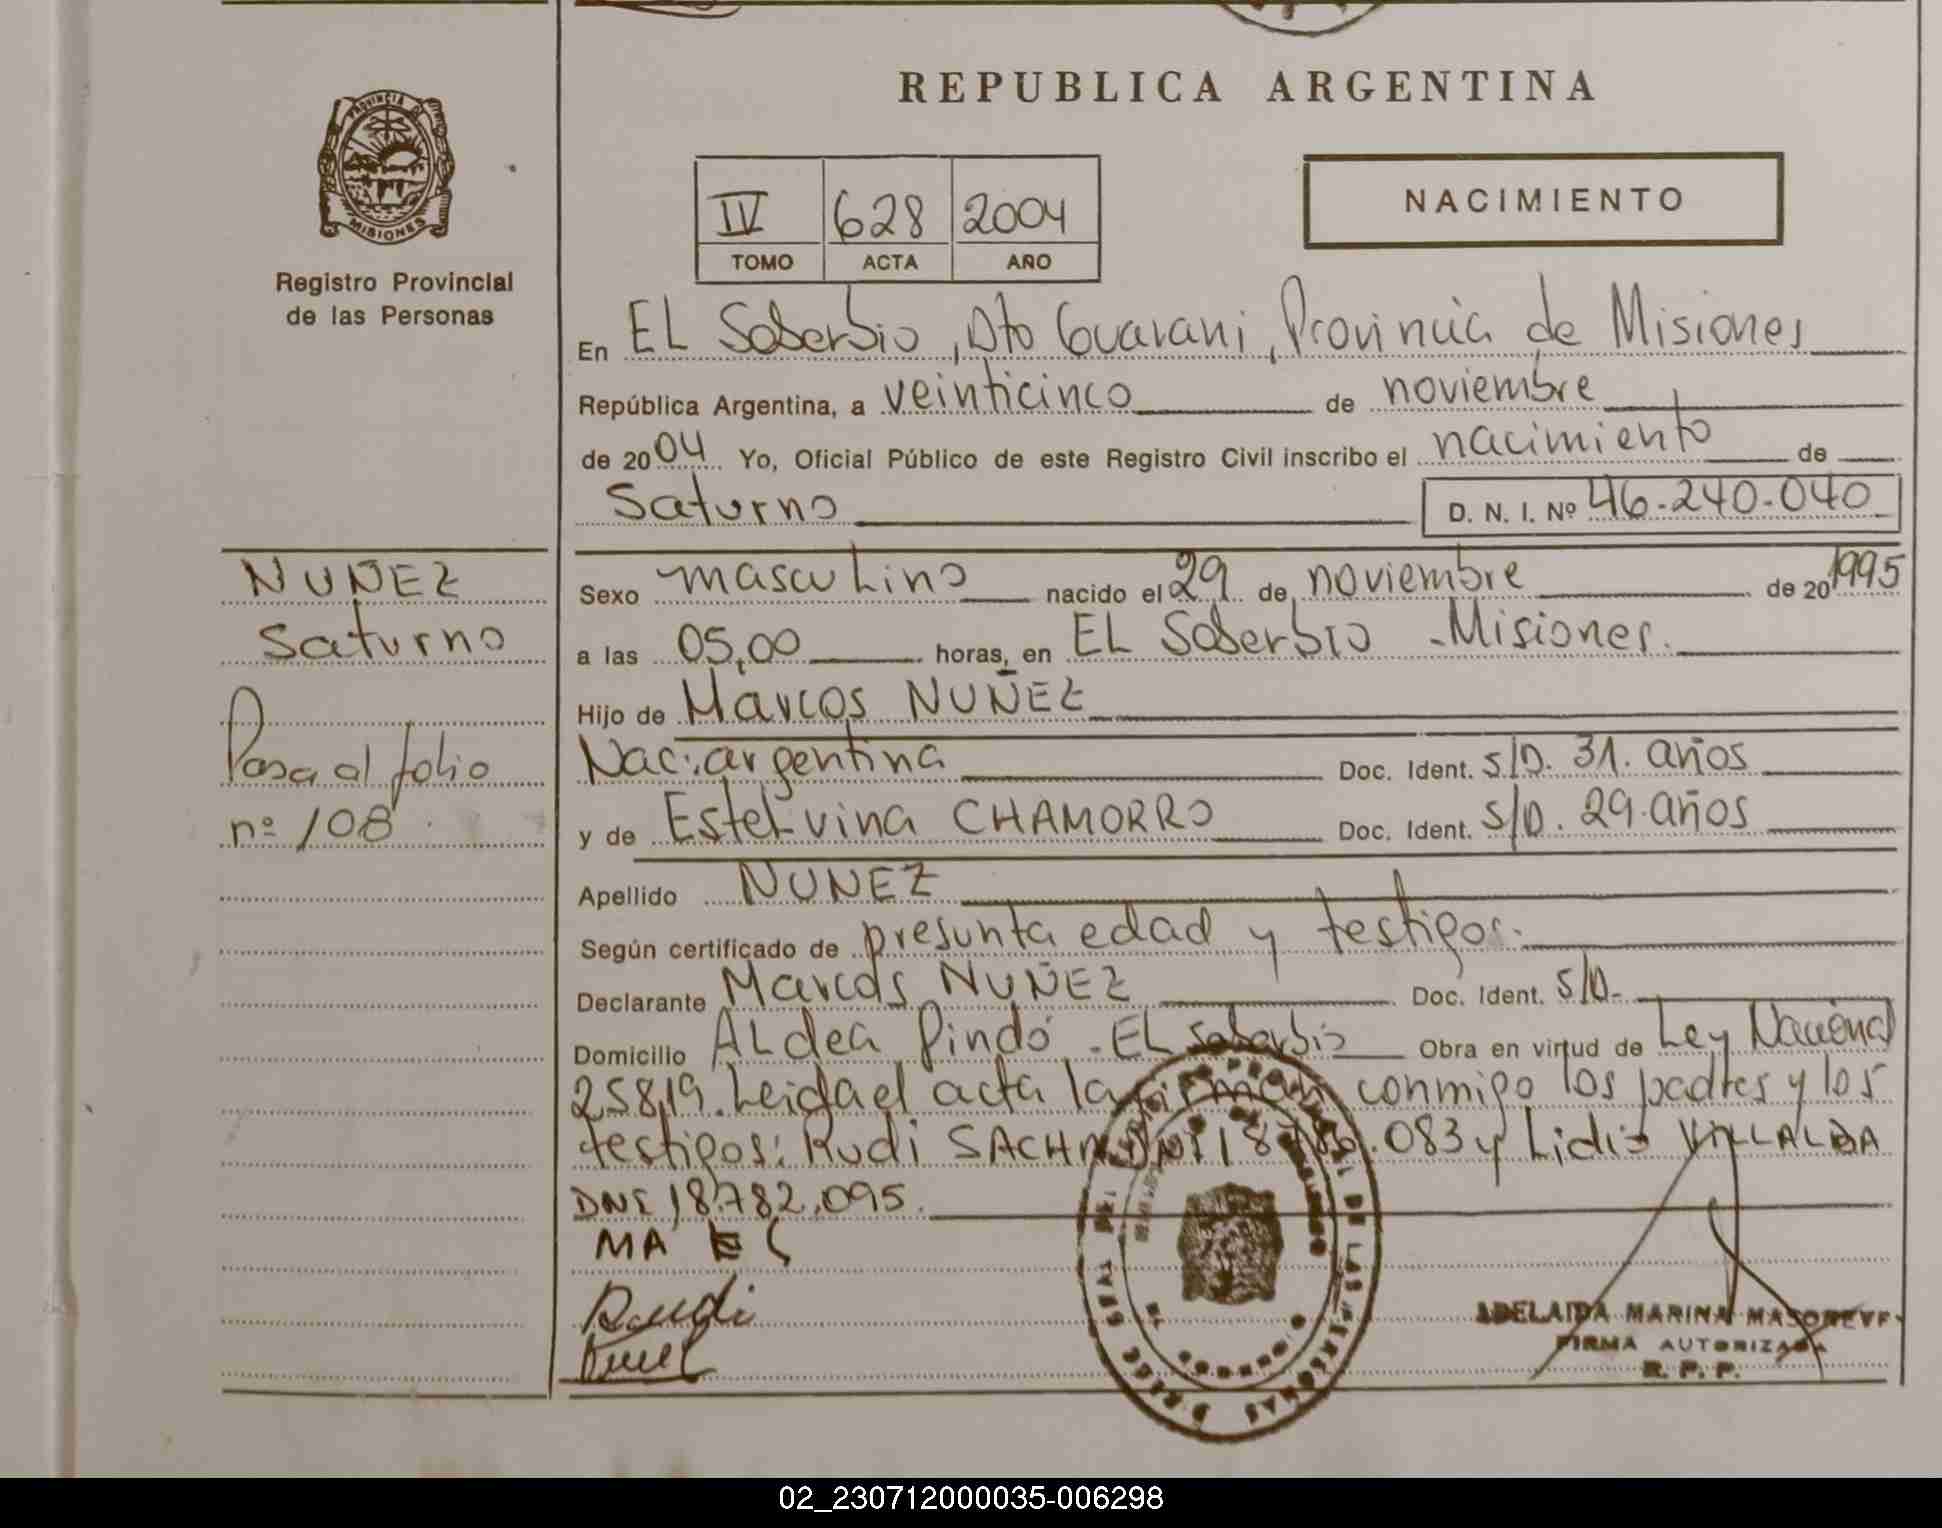 REPUBLICA ARGENTINA
PROVINCIA DE
MISIONES
Registro Provincial
de las Personas
IV 628 2004
TOMO ACTA AÑO
NACIMIENTO
En EL Soberbio, Dto Guarani, Provincia de Misiones
República Argentina, a veinticinco de noviembre
de 2004 Yo, Oficial Público de este Registro Civil inscribo el nacimiento de
Saturno D. N. I. Nº 46.240.040
NUÑEZ
Saturno
Pasa al folio
nº 108
Sexo masculino nacido el 29 de noviembre de 20 1995
a las 05,00 horas, en EL Soberbio - Misiones.
Hijo de Marcos NUÑEZ
Nac: argentina Doc. Ident. S/D. 31. años
y de Estelvina CHAMORRO Doc. Ident. S/D. 29. años
Apellido NUÑEZ
Según certificado de presunta edad y testigos.
Declarante Marcos NUÑEZ Doc. Ident. S/D.
Domicilio ALdea Pindó - EL Soberbio Obra en virtud de Ley Nacional
25819. Leida el acta la firman conmigo los padres y los
testigos: Rudi DNI .083 y Lidia VILLALBA
DNI 18.782.095.
MA
Rudi
ADELAIDA MARINA
FIRMA AUTORIZADA
R. P. P.
02_230712000035-006298